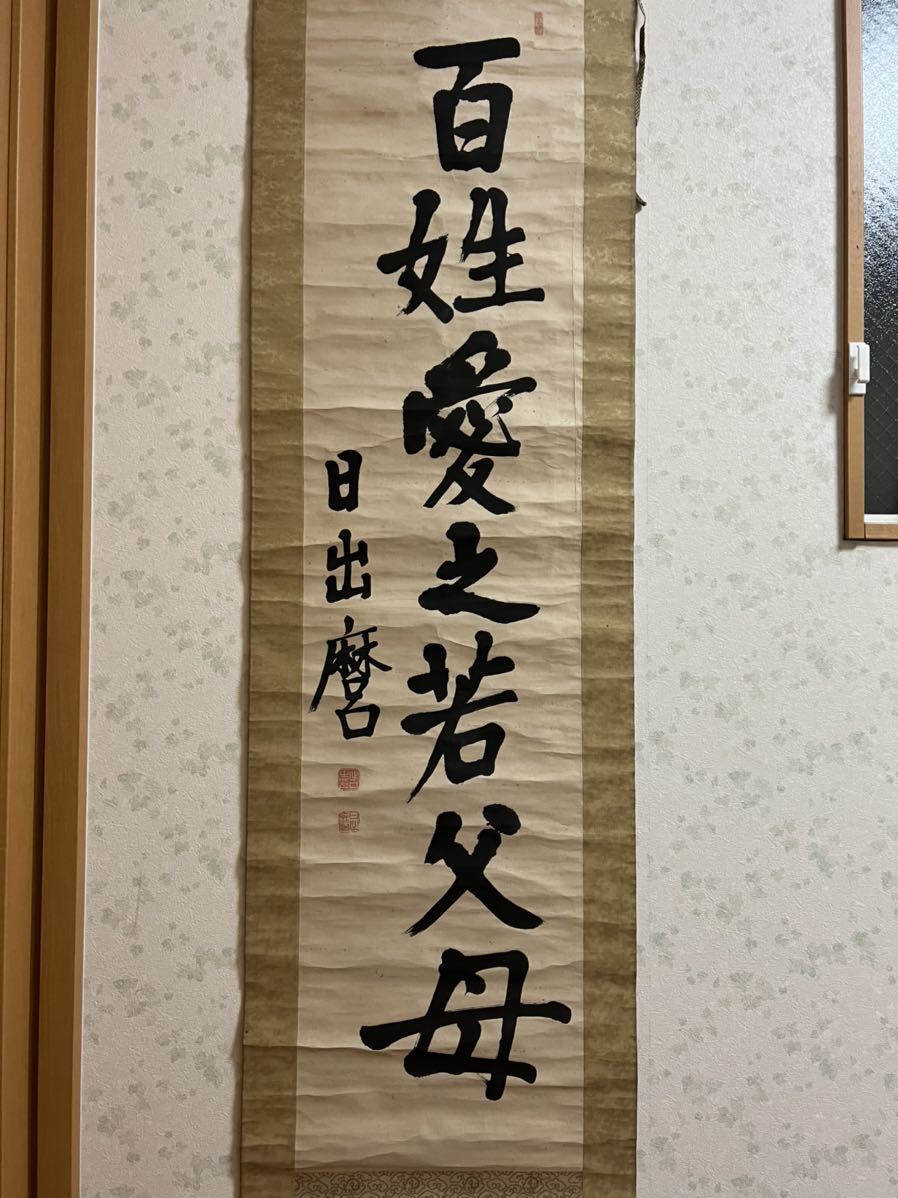 百姓愛之若父母
日出麿